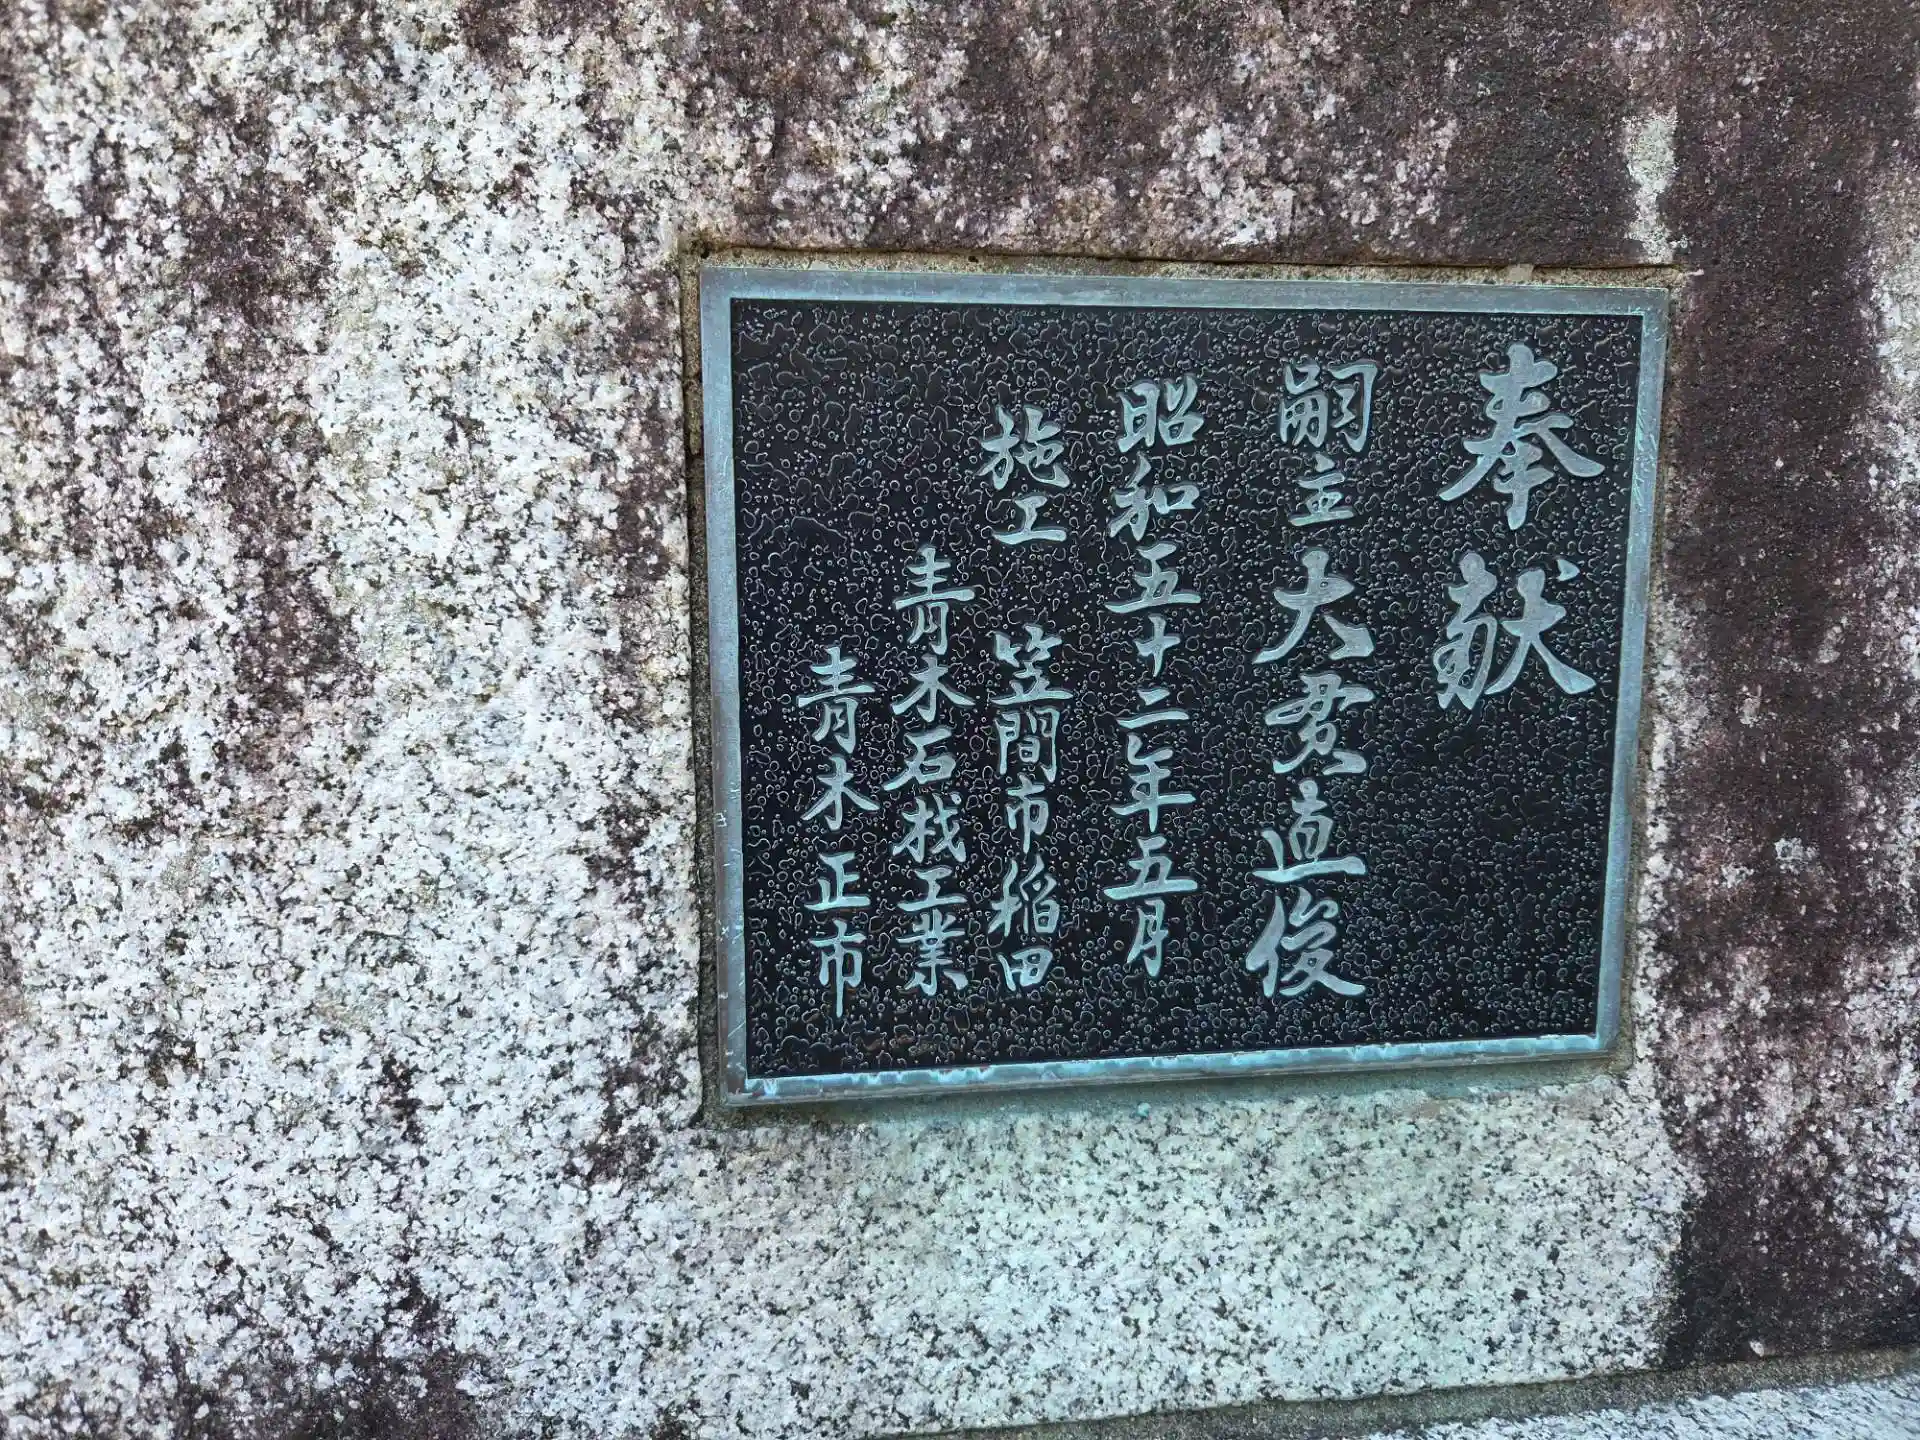 奉献
嗣主大貫直俊
昭和五十二年五月
施工 笠間市稲田
青木石材工業
青木正市